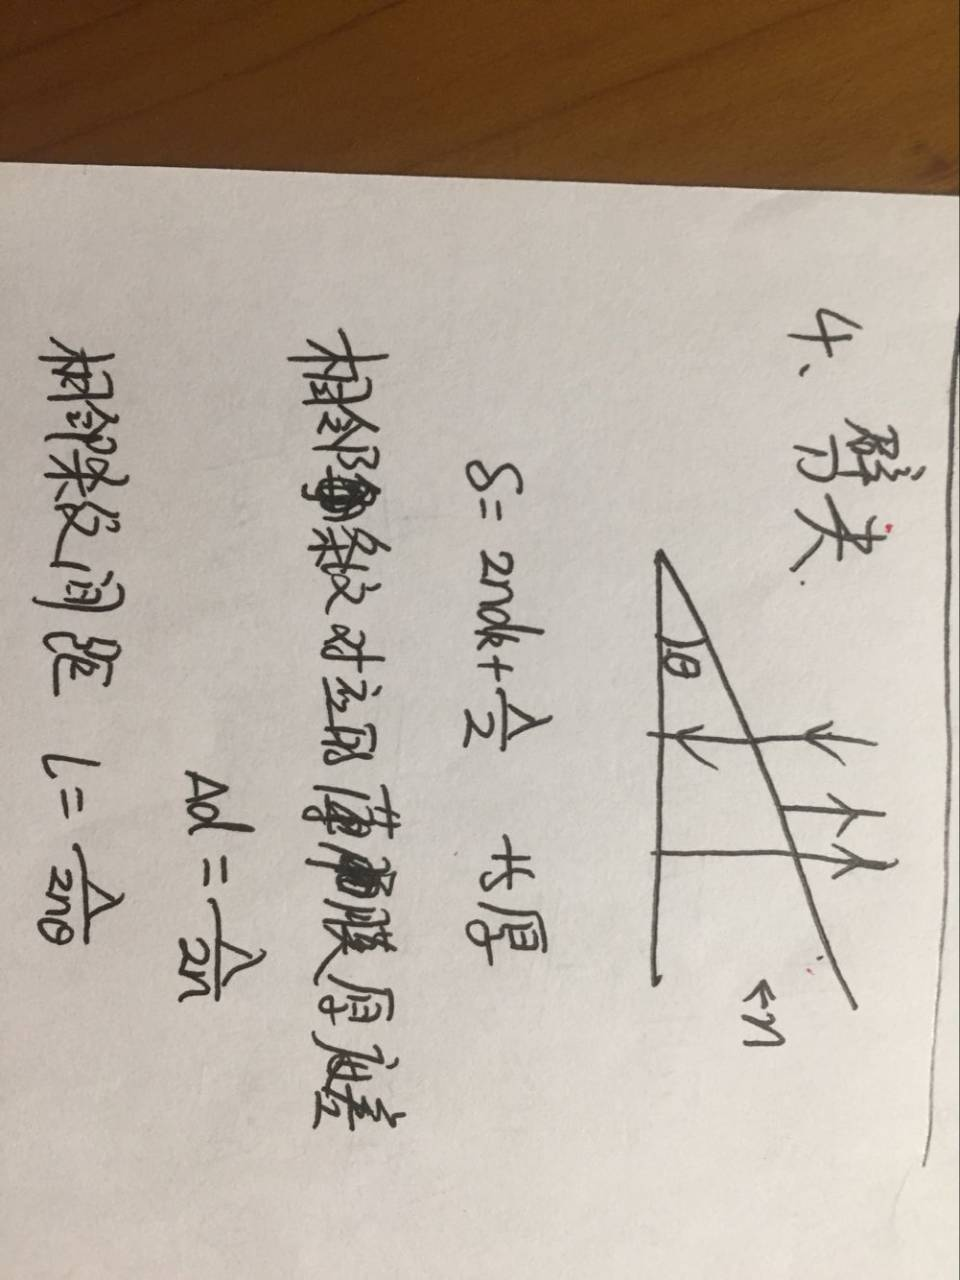 4、劈尖
θ
←n
δ = 2ndk + λ/2 厚
相邻条纹对应的薄膜厚度差
Δd = λ/2n
相邻条纹间距 L = λ/2nθ